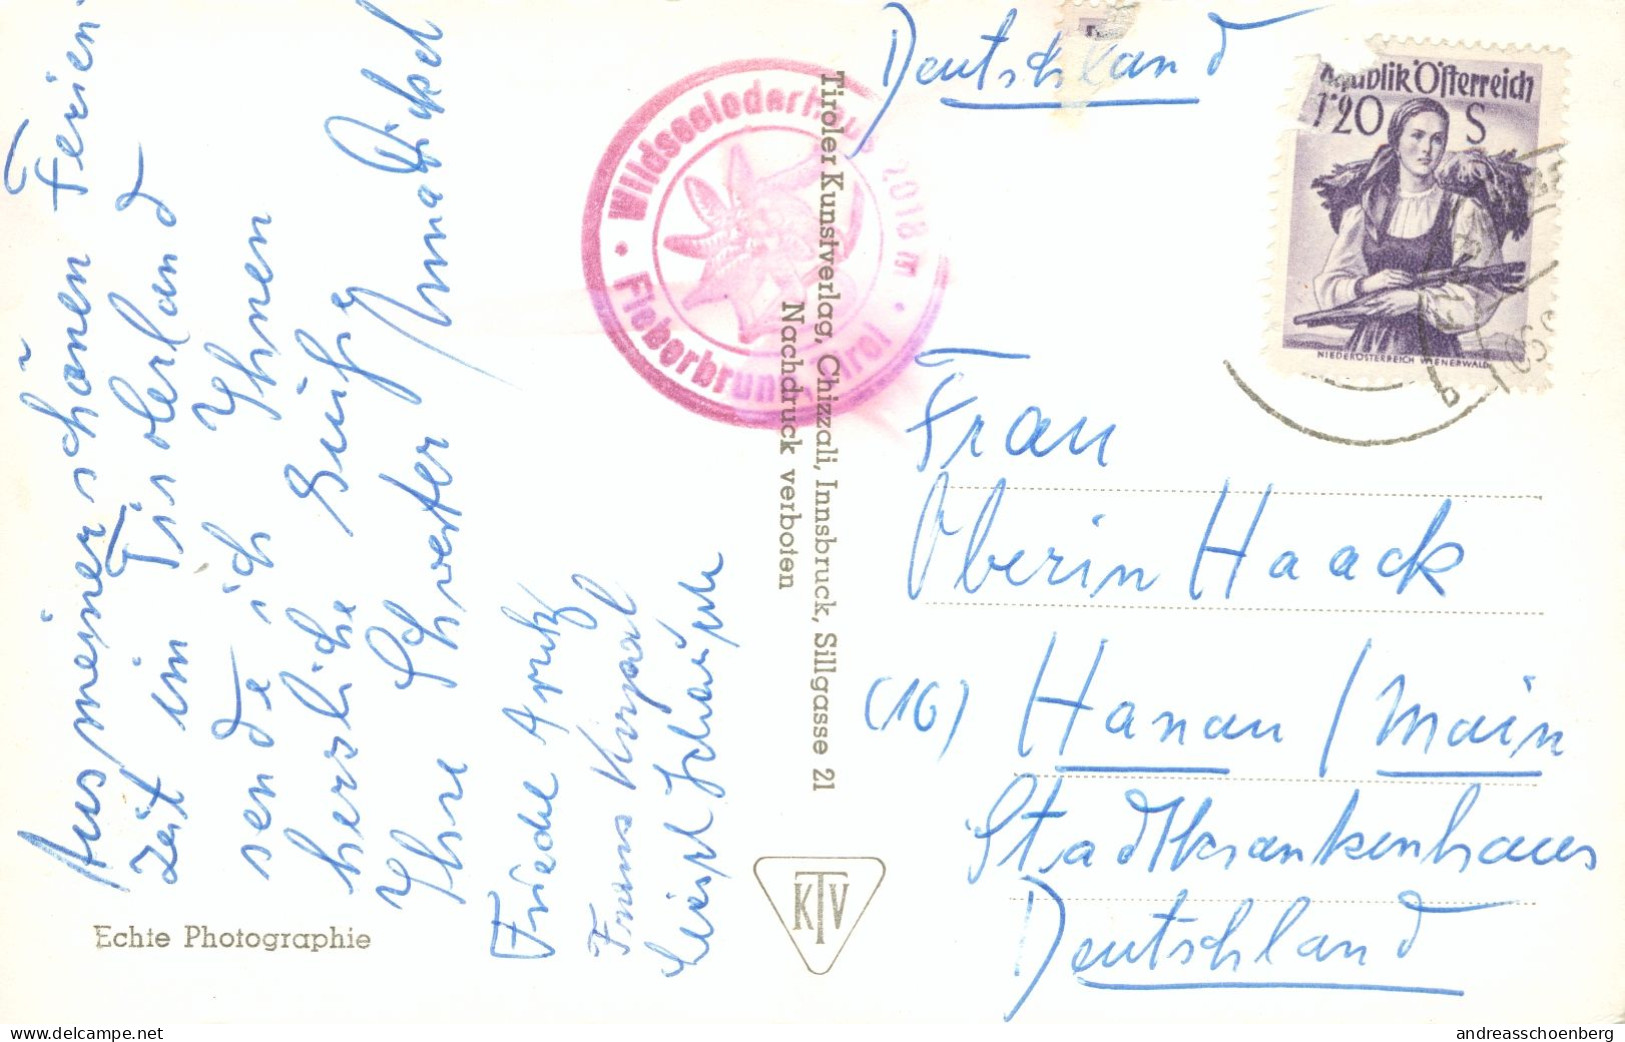 Aus meiner schönen Ferien
Zeit im Tirolerland
sende ich Ihnen
herzliche Grüße
Ihre Schwester
Friedel
Franz
Echte Photographie
Wildseeloderhaus 2018 m
Fieberbrunn Tirol
Tiroler Kunstverlag, Chizzali, Innsbruck, Sillgasse 21
Nachdruck verboten
KTV
Deutschland
Republik Österreich
1·20 S
NIEDERÖSTERREICH WIENERWALD
Frau
Oberin Haack
(16) Hanau / Main
Stadtkrankenhaus
Deutschland
www.delcampe.net
andreasschoenberg